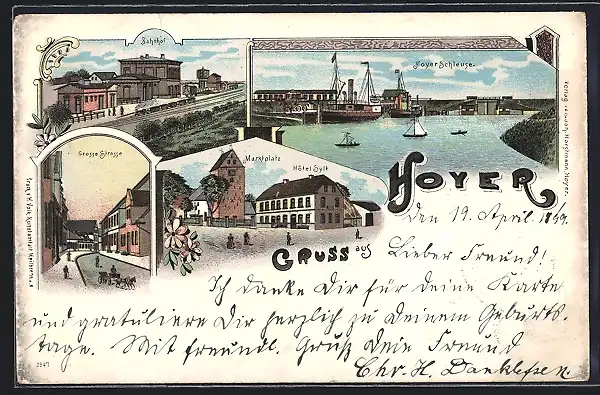 Bahnhof
Hoyer Schleuse.
Grosse Strasse
Marktplatz
Hôtel Sylt
HOYER,
GRUSS aus
den 19. April 1899.
Lieber Freund!
Ich danke Dir für deine Karte
und gratuliere Dir herzlich zu Deinem Geburts-
tage. Mit freundl. Gruß Dein Freund
Chr. H.
2947